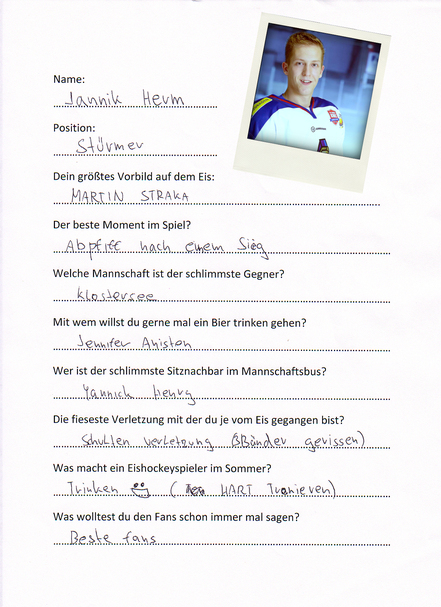 Name:
Jannik Herm
Position:
Stürmer
Dein größtes Vorbild auf dem Eis:
MARTIN STRAKA
Der beste Moment im Spiel?
Abpfiff nach einem Sieg
Welche Mannschaft ist der schlimmste Gegner?
Klostersee
Mit wem willst du gerne mal ein Bier trinken gehen?
Jennifer Aniston
Wer ist der schlimmste Sitznachbar im Mannschaftsbus?
Yannick Henry
Die fieseste Verletzung mit der du je vom Eis gegangen bist?
Schulten verletzung (3Bänder gerissen)
Was macht ein Eishockeyspieler im Sommer?
Trinken ( HART Tranieren)
Was wolltest du den Fans schon immer mal sagen?
Beste fans